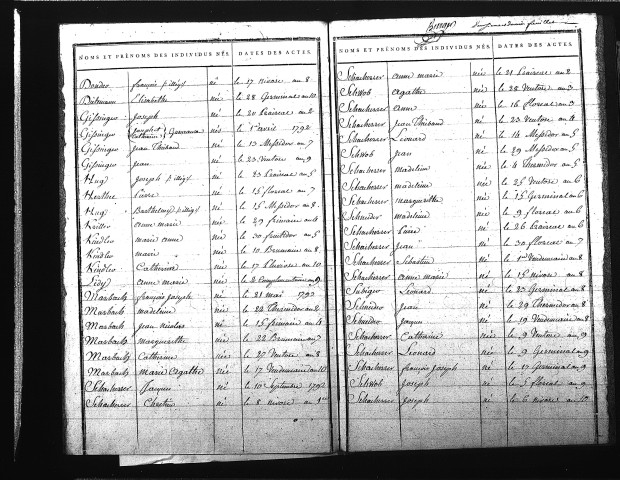 NOMS ET PRÉNOMS DES INDIVIDUS NÉS. DATES DES ACTES.
françois né le 17 Nivose au 8
Elisabethe née le 28 Germinal au 10
Gissinger Joseph né le 20 Prairial au 2
Gissinger Germana nés le 1er avril 1792
Gissinger Jean Thibaud né le 13 Messidor au 7
Gissinger Jean né le 23 Ventose au 9
Hug Joseph né le 23 Prairial au 5
Pierre né le 15 floreal au 7
Hug Barthelemy né le 15 Messidor au 8
anne marie née le 29 frimaire au 6
Kindler marie anne née le 30 fructidor au 5
Kindler marie née le 10 Brumaire au 8
Kindler Catherine née le 17 Pluviose au 10
Lidy anne marie née le 2 Complementaire au 9
Marbach françois Joseph né le 21 mai 1793
Marbach madeleine née le 24 Thermidor au 2
Marbach Jean Nicolas né le 15 frimaire au 4
Marbach marguerithe née le 22 Brumaire au 7
Marbach Catherine née le 27 Ventose au 8
Marbach Marie Agathe née le 17 Vendemiaire au 10
Schacherrer Jacques né le 10 septembre 1792
Schacherrer Chretien né le 8 Nivose au 1er
NOMS ET PRÉNOMS DES INDIVIDUS NÉS. DATES DES ACTES.
Schacherrer anne marie née le 21 Prairial au 2
Schwob agathe née le 28 Ventose au 3
Schacherrer anne née le 16 floreal au 3
Schacherrer Jean Thibaud né le 23 Ventose au 4
Schacherrer Leonard né le 16 Messidor au 5
Schwob Jean né le 29 Messidor au 5
Schacherrer madeleine née le 4 Thermidor au 5
Schacherrer madeleine née le 25 Ventose au 6
Schacherrer marguerithe née le 15 Germinal au 6
Schneider madeleine née le 9 floreal au 6
Schacherrer née le 26 Prairial au 6
Schacherrer Jean né le 30 floreal au 7
Schacherrer Sebastien né le 1er Vendemiaire au 8
Schacherrer anne marie née le 15 Nivose au 8
Subiger Leonard né le 23 Germinal au 8
Schneider Jean né le 29 Thermidor au 8
Schneider Jacques né le 19 Vendemiaire au 8
Schacherrer Catherine née le 9 Ventose au 9
Schacherrer Leonard né le 9 Germinal au 9
Schacherrer françois Joseph né le 17 Germinal au 9
Schwob Joseph né le 5 floreal au 9
Schacherrer Joseph né le 6 Nivose au 10